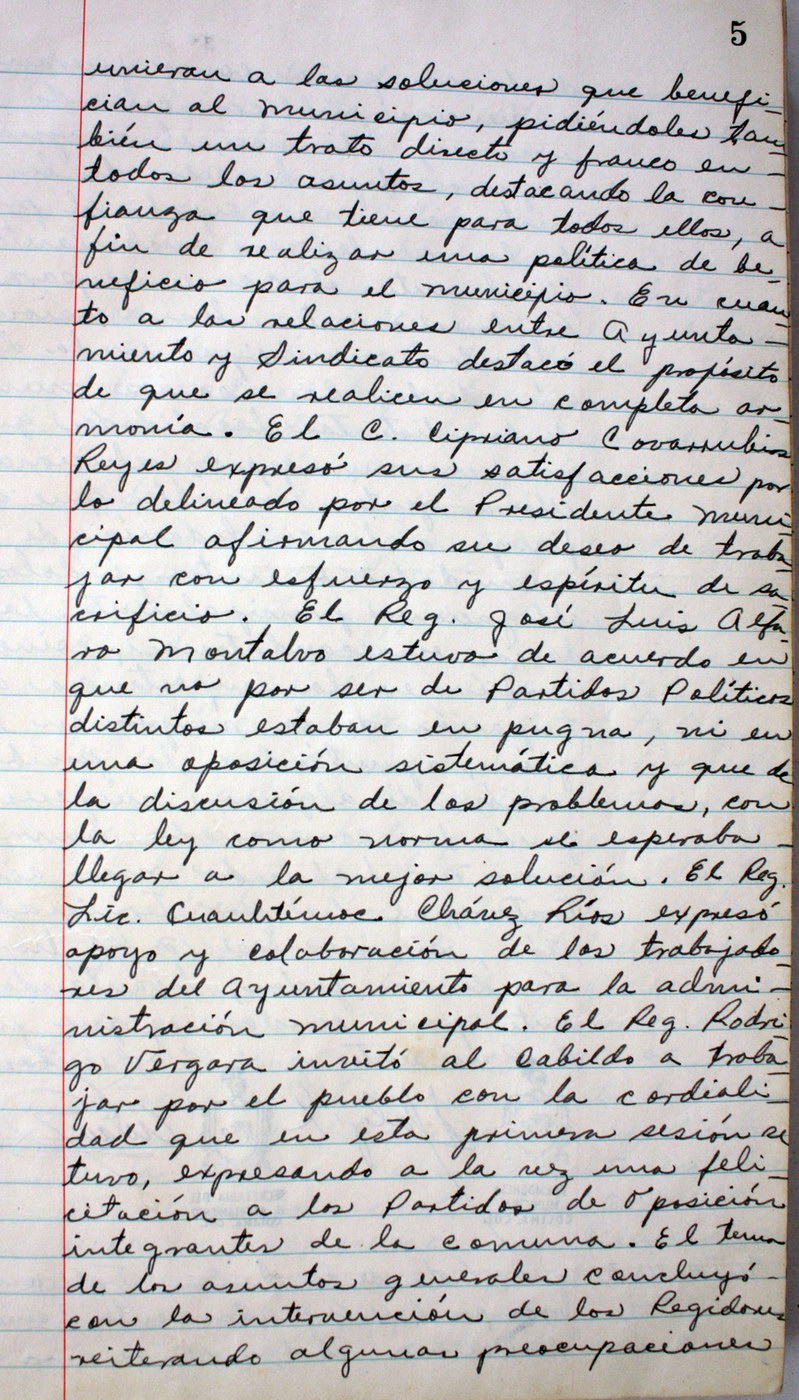 5
unieran a las soluciones que benefi-
cian al municipio, pidiéndoles tam-
bién un trato directo y franco en -
todos los asuntos, destacando la con-
fianza que tiene para todos ellos, a
fin de realizar una política de be-
neficio para el municipio. En cuan-
to a las relaciones entre Ayunta-
miento y Sindicato destacó el propósito
de que se realicen en completa ar-
monía. El C. Cipriano Covarrubias
Reyes expresó sus satisfacciones por
lo delineado por el Presidente Muni-
cipal afirmando su deseo de traba-
jar con esfuerzo y espíritu de sa-
crificio. El Reg. José Luis Alfa-
ro Montalvo estuvo de acuerdo en
que no por ser de Partidos Políticos
distintos estaban en pugna, ni en
una oposición sistemática y que de
la discusión de los problemas, con
la ley como norma se esperaba -
llegar a la mejor solución. El Reg.
Lic. Cuauhtémoc Chávez Ríos expresó
apoyo y colaboración de los trabajado-
res del Ayuntamiento para la admi-
nistración municipal. El Reg. Rodri-
go Vergara invitó al Cabildo a traba-
jar por el pueblo con la cordiali-
dad que en esta primera sesión se
tuvo, expresando a la vez una feli-
citación a los Partidos de Oposición
integrantes de la comuna. El tema
de los asuntos generales concluyó -
con la intervención de los Regidores
reiterando algunas preocupaciones